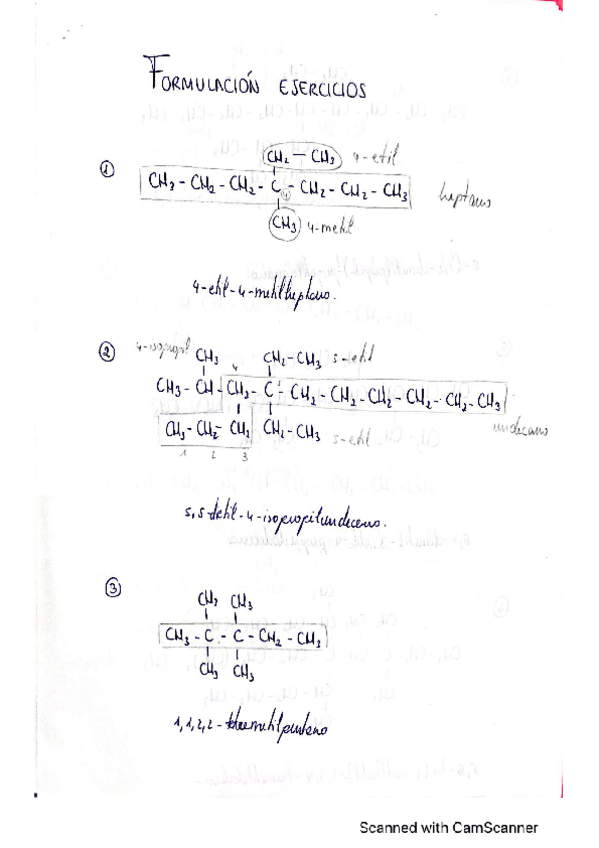 FORMULACIÓN EJERCICIOS
① CH₂ – CH₃ 4-etil
CH₃ – CH₂ – CH₂ – C – CH₂ – CH₂ – CH₃ heptano
(4)
CH₃ 4-metil
4-etil-4-metilheptano.
② 4-isopropil CH₃ CH₂-CH₃ 5-etil
4
CH₃ – CH – CH₂ – C – CH₂ – CH₂ – CH₂ – CH₂ – CH₂ – CH₃
undecano
CH₃ – CH₂ – CH₂ CH₂ – CH₃ 5-etil
1 2 3
5,5-dietil-4-isopropilundecano.
③
CH₃ CH₃
CH₃ – C – C – CH₂ – CH₃
CH₃ CH₃
1,1,2,2-tetrametilpentano
Scanned with CamScanner